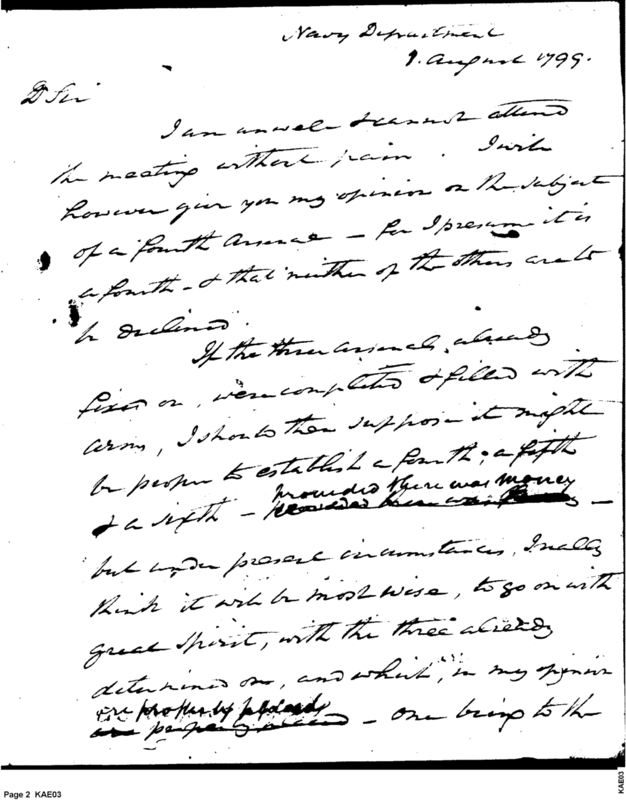 Navy Department
9. August 1799.
D Sir
I am unwell & cannot attend
the meeting without pain. I will
however give you my opinion on the subject
of a fourth Arsenal — for I presume it is
a fourth - & that neither of the others are to
be declined.
If the three arsenals, already
fixed on, were completed & filled with
arms, I should then suppose it might
be proper to establish a fourth, a fifth
provided there was money
& a sixth — provided there was —
but under present circumstances, I really
think it will be most wise, to go on with
great spirit, with the three already
determined on, and which, in my opinion
are properly placed
are properly placed — one being to the
Page 2 KAE03
KAE03